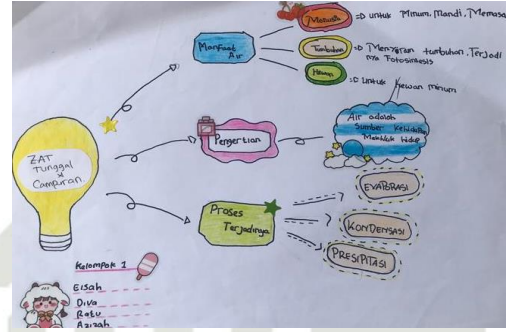 ZAT
Tunggal
&
Campuran
Manfaat
Air
Manusia
=> untuk Minum, Mandi, Memasa
Tumbuhan
=> Menyiram tumbuhan, Terjadi
nya Fotosintesis
Hewan
=> Untuk Hewan minum
Pengertian
Air adalah
Sumber Kehidupan
Makhluk Hidup
Proses
Terjadinya
EVAPORASI
KONDENSASI
PRESIPITASI
Kelompok 1
Eisah
Diva
Ratu
Azizah